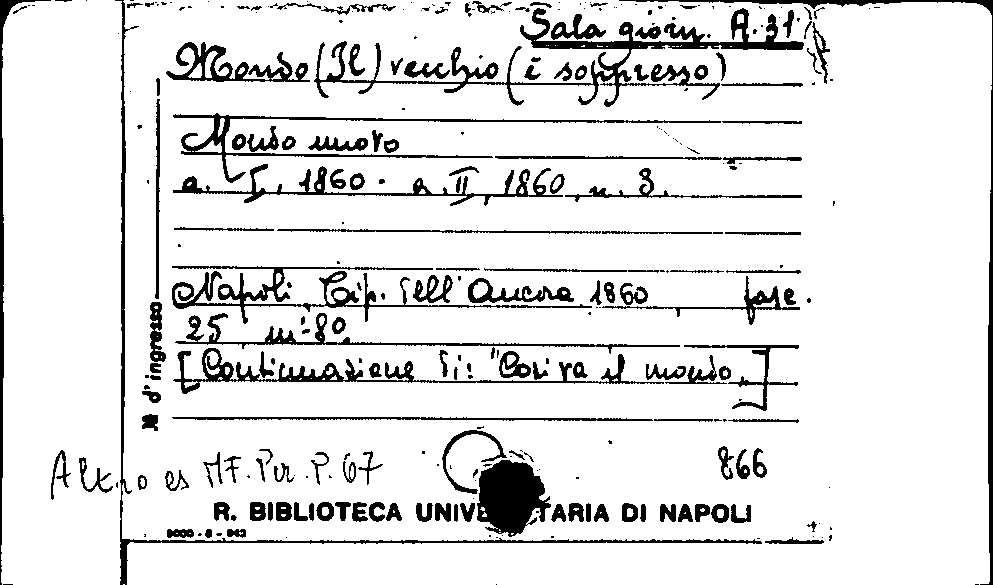 Sala giorn. A.31
Mondo (Il) vecchio (è soppresso)
Mondo nuovo
a. I, 1860 - a. II, 1860, n. 8.
Napoli, Tip. dell'Ancora 1860, fasc.
25 in-8º.
[Continuazione di: "Così va il mondo„]
Altro es MF. Per. P. 67
866
R. BIBLIOTECA UNIVE TARIA DI NAPOLI
Nº d'ingresso